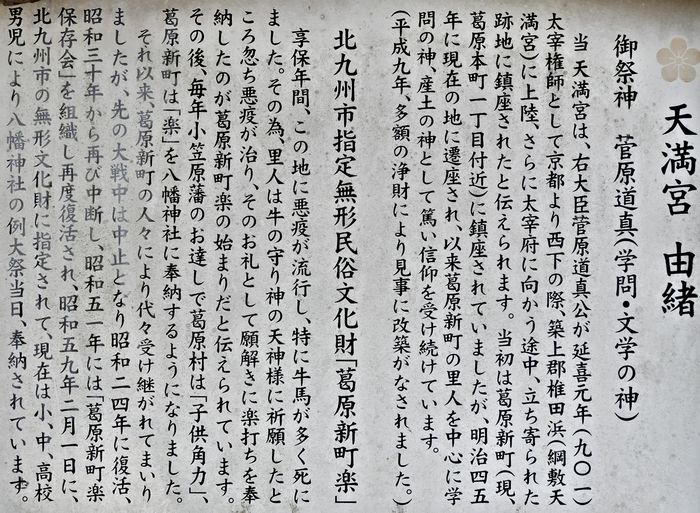 天満宮 由緒
御祭神 菅原道真(学問・文学の神)
当 天満宮は、右大臣菅原道真公が延喜元年(九〇一)
太宰権師として京都より西下の際、築上郡椎田浜(綱敷天
満宮)に上陸、さらに太宰府に向かう途中、立ち寄られた
跡地に鎮座されたと伝えられます。当初は葛原新町(現、
葛原本町一丁目付近)に鎮座されていましたが、明治四五
年に現在の地に遷座され、以来葛原新町の里人を中心に学
問の神、産土の神として篤い信仰を受け続けています。
(平成九年、多額の浄財により見事に改築がなされました。)
北九州市指定無形民俗文化財「葛原新町楽」
享保年間、この地に悪疫が流行し、特に牛馬が多く死に
ました。その為、里人は牛の守り神の天神様に祈願したと
ころ忽ち悪疫が治り、そのお礼として願解きに楽打ちを奉
納したのが葛原新町楽の始まりだと伝えられています。
その後、毎年小笠原藩のお達しで葛原村は「子供角力」、
葛原新町は「楽」を八幡神社に奉納するようになりました。
それ以来、葛原新町の人々により代々受け継がれてまいり
ましたが、先の大戦中は中止となり昭和二四年に復活、
昭和三十年から再び中断し、昭和五一年には「葛原新町楽
保存会」を組織し再度復活され、昭和五九年二月一日に、
北九州市の無形文化財に指定されて、現在は小、中、高校
男児により八幡神社の例大祭当日、奉納されています。